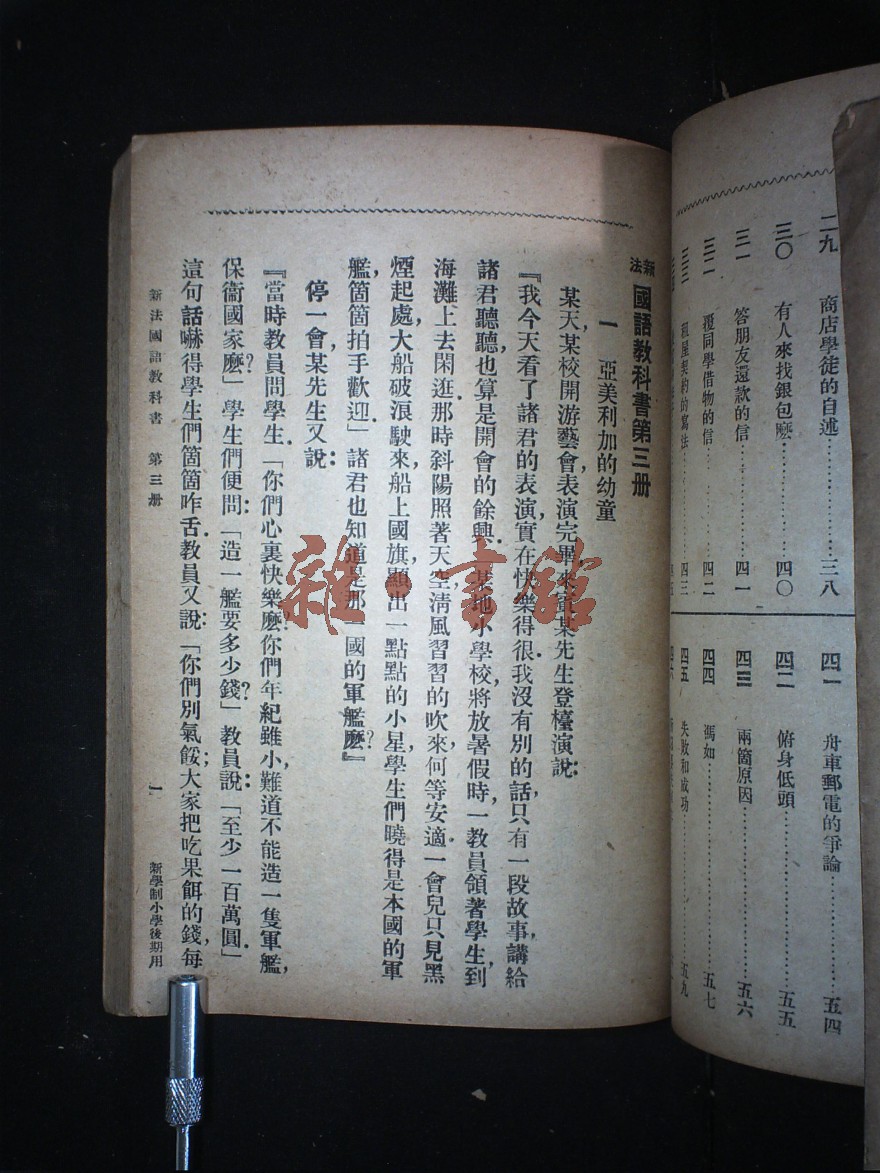 二九 商店學徒的自述 三八
三〇 有人來找銀包麽 四〇
三一 答朋友還款的信 四一
三二 覆同學借物的信 四二
三三 租屋契約的寫法 四三
四一 舟車郵電的爭論 五四
四二 俯身低頭 五五
四三 兩箇原因 五六
四四 馮如 五七
四五 失敗和成功 五九
新法國語教科書第三册
一 亞美利加的幼童
某天某校開游藝會表演完畢，來賓某先生登檯演說：
『我今天看了諸君的表演，實在快樂得很．我沒有別的話，只有一段故事，講給
諸君聽聽，也算是開會的餘興．某地小學校，將放暑假時，一教員領著學生，到
海灘上去閑逛．那時斜陽照著天空，淸風習習的吹來，何等安適．一會兒只見黑
煙起處，大船破浪駛來，船上國旗，顯出一點點的小星，學生們曉得是本國的軍
艦，箇箇拍手歡迎」諸君也知道是那國的軍艦麽？』
停一會，某先生又說：
『當時教員問學生．「你們心裏快樂麽？你們年紀雖小，難道不能造一隻軍艦，
保衞國家麽？」學生們便問：「造一艦要多少錢？」教員說：「至少一百萬圓」
這句話嚇得學生們箇箇咋舌．教員又說：「你們別氣餒；大家把吃果餌的錢，每
新法國語教科書 第三册 一 新學制小學後期用
雜·書館